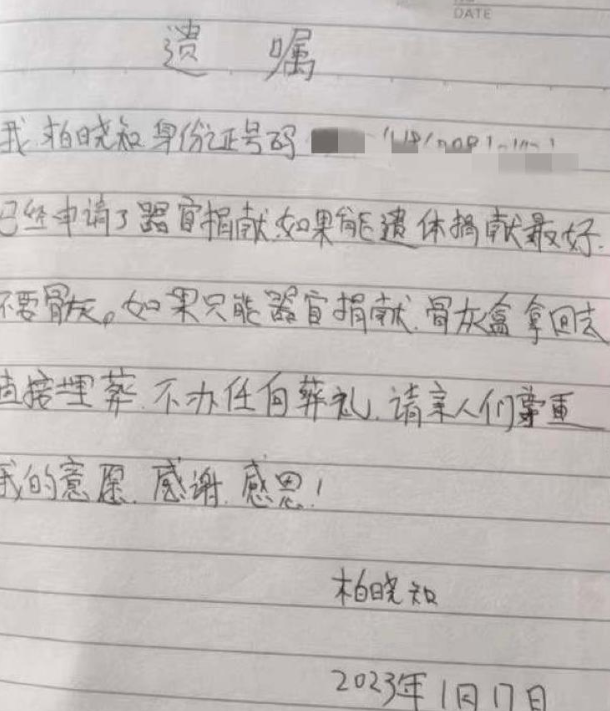 DATE
遗 嘱
我.柏晓知身份证号码
已经申请了器官捐献.如果能遗体捐献最好.
不要骨灰。如果只能器官捐献.骨灰盒拿回去
直接埋葬.不办任何葬礼.请亲人们尊重
我的意愿.感谢.感恩!
柏晓知
2023年1月17日